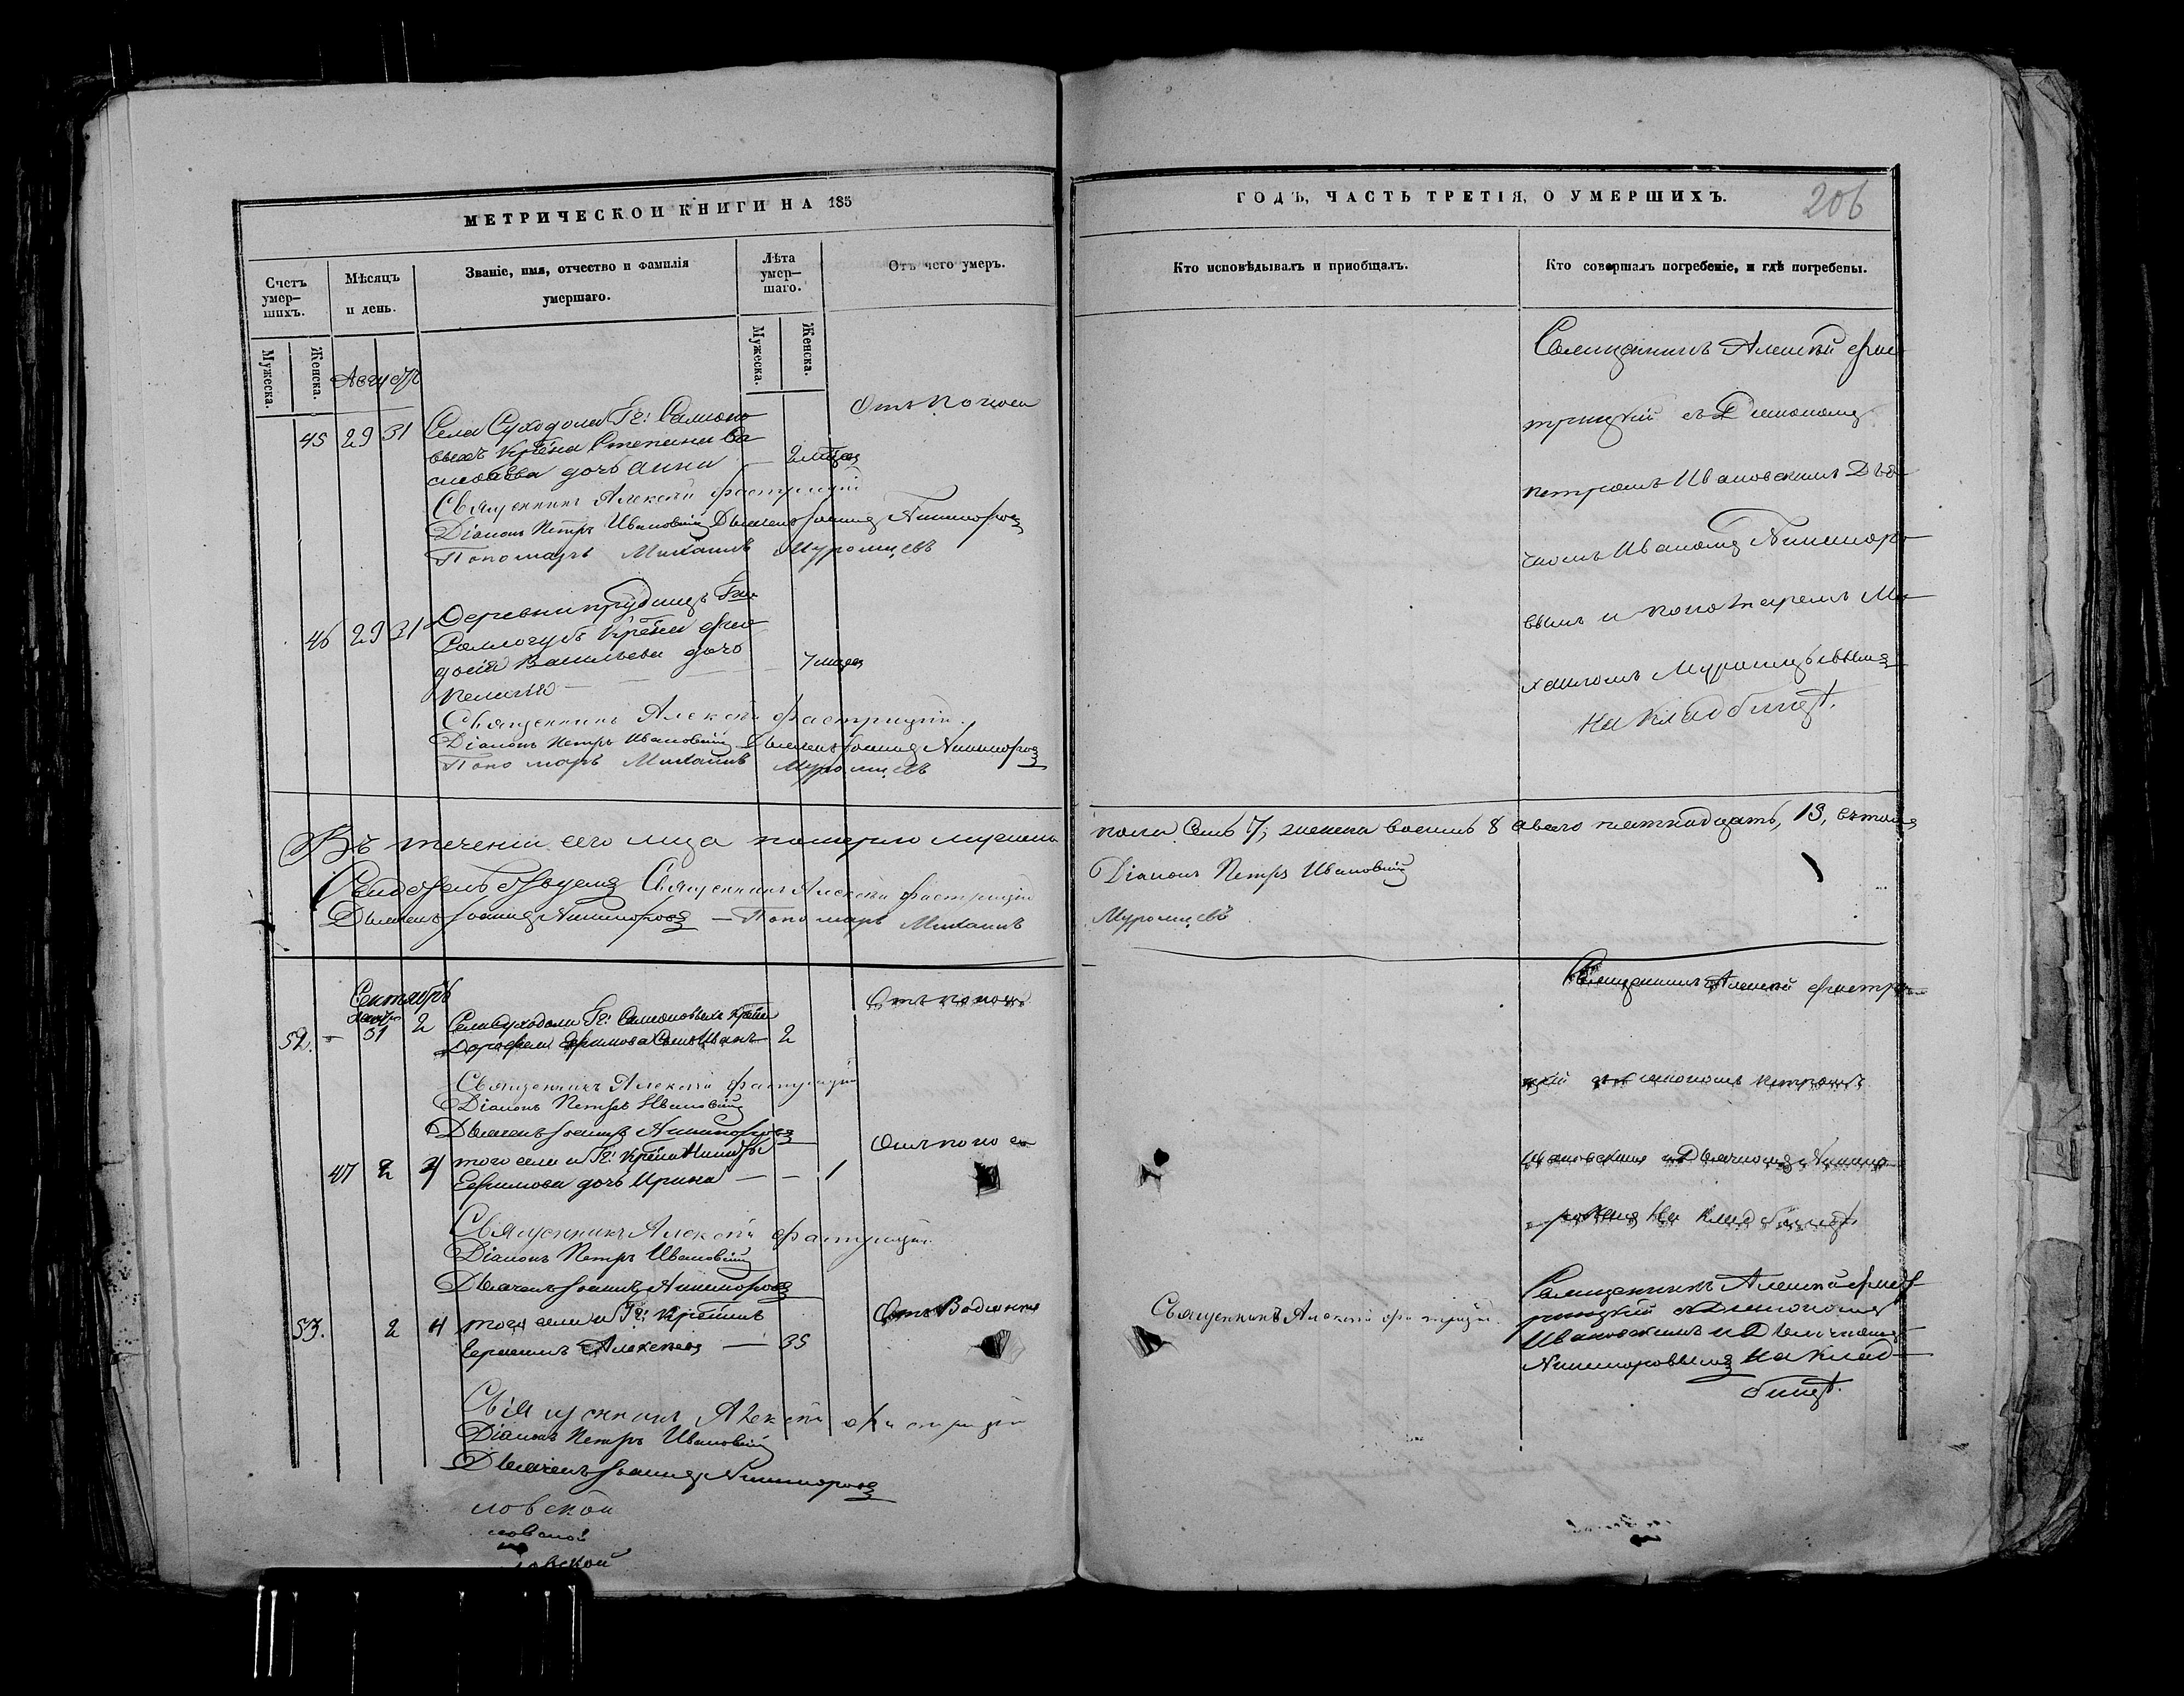 МЕТРИЧЕСКОЙ КНИГИ НА 185
Счетъ умер-
шихъ.
Мѣсяцъ
и день.
Званіе, имя, отчество и фамилія
умершаго.
Лѣта
умер-
шаго.
Отъ чего умеръ.
Мужеска.
Женска.
Мужеска.
Женска.
Августъ
45 29 31 Села Суходола Гг:
крѣ на Степана Ва
дочь Анна 2 мѣсяц
Отъ поноса
Священникъ Алексѣй Фастрицкій
Діаконъ Петръ Ивановскій Дьячекъ Іоаннъ Никифоровъ
Пономарь Михаилъ Муромцевъ
46 29 31 Деревни Прудищъ Гжи
крѣна Ѳео
досія Васильева дочь
Пелагія 7 мѣсяц
Священникъ Алексѣй Фастрицкій
Діаконъ Петръ Ивановскій Дьячекъ Іоаннъ Никифоровъ
Пономарь Михаилъ Муромцевъ
Въ теченіи сего мѣца померло мужеска
Свидѣтельствуемъ Священникъ Алексѣй Фастрицкій
Дьячекъ Іоаннъ Никифоровъ — Пономарь Михаилъ
Сентябрь
52. - 31 2 Села Суходола Гг: крѣна
Ефимова сынъ Иванъ 2
Отъ поноса
Священникъ Алексѣй Фастрицкій
Діаконъ Петръ Ивановскій
Дьячекъ Іоаннъ Никифоровъ
47 2 4 того села и Гг: крѣна
Ефимова дочь Ирина — - 1
Отъ поноса
Священникъ Алексѣй Фастрицкій
Діаконъ Петръ Ивановскій
Дьячекъ Іоаннъ Никифоровъ
53. 2 4 того села и Гг:
Герасимъ Алексѣевъ — 35
Отъ водянки
Священникъ Алексѣй Фастрицкій
Діаконъ Петръ Ивановскій
Дьячекъ Іоаннъ Никифоровъ
ловской
ловской
ловской
ГОДЪ, ЧАСТЬ ТРЕТІЯ, О УМЕРШИХЪ.
206
Кто исповѣдывалъ и пріобщалъ.
Кто совершалъ погребеніе, и гдѣ погребены.
Священникъ Алексѣй Фас
трицкій съ Діакономъ
Петромъ Ивановскимъ Дья
чкомъ Иваномъ Никифоро
вымъ и пономаремъ Ми
хаиломъ Муромцевымъ
на кладбищѣ.
пола семь 7, женска восемь 8 а всего пятнадцать, 15, въ томъ
Діаконъ Петръ Ивановскій
Муромцевъ
Священникъ Алексѣй Фастри
цкій съ Діакономъ Петромъ
Ивановскимъ и Дьячкомъ Никифо
ровымъ на кладбищѣ.
Священникъ Алексѣй Фастрицкій
Священникъ Алексѣй Фаст
рицкій съ Діакономъ
Ивановскимъ и Дьячкомъ
Никифоровымъ на клад
бищѣ.